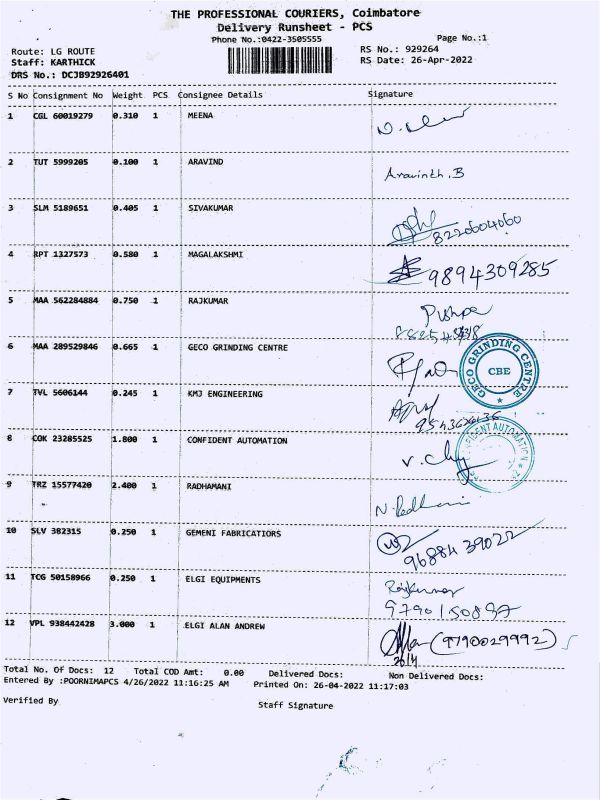 THE PROFESSIONAL COURIERS, Coimbatore
Delivery Runsheet - PCS
Phone No.:0422-3505555
Page No.:1
Route: LG ROUTE
RS No.: 929264
Staff: KARTHICK
RS Date: 26-Apr-2022
DRS No.: DCJB92926401
S No Consignment No Weight PCS Consignee Details Signature
1 CGL 60019279 0.310 1 MEENA
2 TUT 5999205 0.100 1 ARAVIND Aravinth.B
3 SLM 5189651 0.405 1 SIVAKUMAR
8220604060
4 RPT 1327573 0.580 1 MAGALAKSHMI 9894309285
5 MAA 562284884 0.750 1 RAJKUMAR Pushpa
6 MAA 289529846 0.665 1 GECO GRINDING CENTRE
GECO GRINDING CENTRE
CBE
7 TVL 5606144 0.245 1 KMJ ENGINEERING
8 COK 23285525 1.800 1 CONFIDENT AUTOMATION
AUTOMATION
9 TRZ 15577420 2.400 1 RADHAMANI
10 SLV 382315 0.250 1 GEMENI FABRICATIORS
9688439022
11 TCG 50158966 0.250 1 ELGI EQUIPMENTS Rajkumar
12 VPL 938442428 3.000 1 ELGI ALAN ANDREW (9790029992)
26/4
Total No. Of Docs: 12 Total COD Amt: 0.00 Delivered Docs: Non Delivered Docs:
Entered By :POORNIMAPCS 4/26/2022 11:16:25 AM Printed On: 26-04-2022 11:17:03
Verified By
Staff Signature